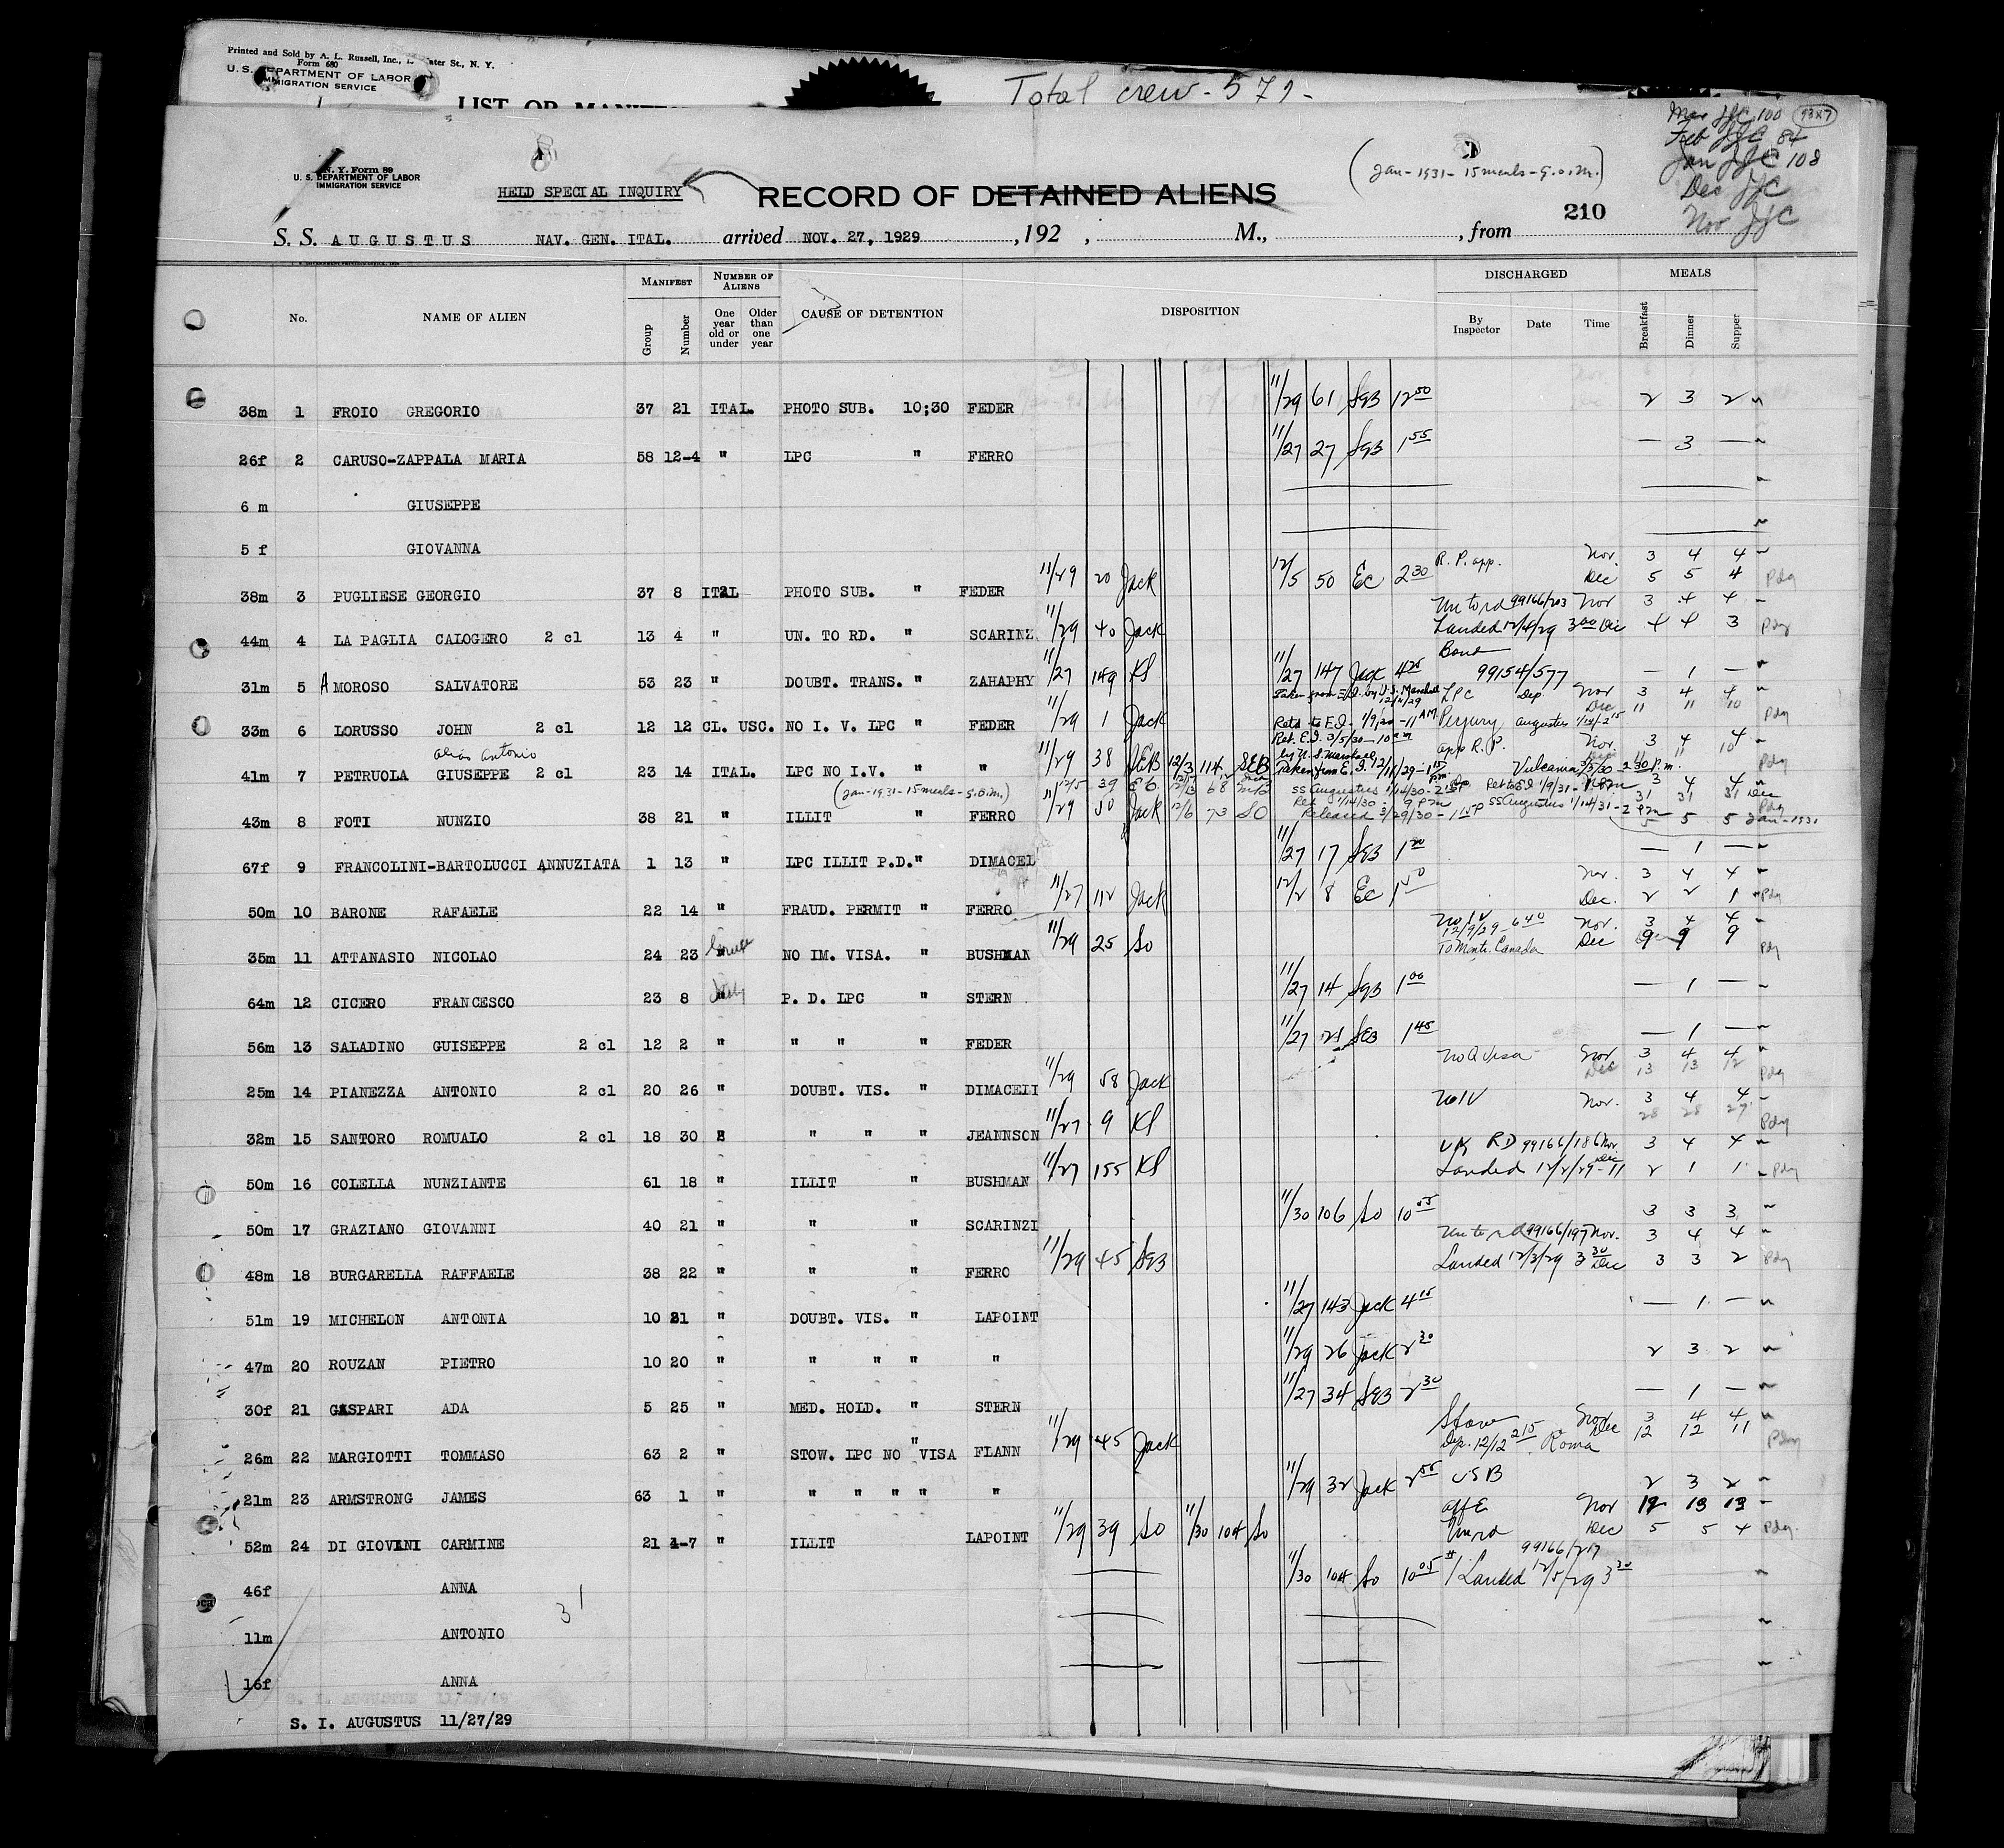 Printed and Sold by A. L. Russell, Inc., ater St., N. Y.
Form 680
U. S. DEPARTMENT OF LABOR
IMMIGRATION SERVICE
Total crew - 571 -
N. Y. Form 89
U. S. DEPARTMENT OF LABOR
IMMIGRATION SERVICE
HELD SPECIAL INQUIRY
RECORD OF DETAINED ALIENS
(Jan - 1931 - 15 meals - G.O.M.)
Mar JJC 100
Feb JJC 84
Jan JJC 108
Dec JJC
Nov JJC
210
S. S. AUGUSTUS NAV. GEN. ITAL. arrived NOV. 27, 1929 , 192 , M., , from
No. NAME OF ALIEN MANIFEST Group Number NUMBER OF ALIENS One year old or under Older than one year CAUSE OF DETENTION DISPOSITION DISCHARGED By Inspector Date Time MEALS Breakfast Dinner Supper
38m 1 FROIO GREGORIO 37 21 ITAL. PHOTO SUB. 10;30 FEDER 11/29 61 SGB 12 50 2 3 2
26f 2 CARUSO-ZAPPALA MARIA 58 12-4 " LPC " FERRO 11/27 27 SGB 1 55 — 3 —
6 m GIUSEPPE
5 f GIOVANNA
38m 3 PUGLIESE GEORGIO 37 8 ITAL PHOTO SUB. " FEDER 11/29 20 Jack 12/5 50 EC 2 30 R. P. app. Nov. 3 4 4
Dec 5 5 4 Pdg
44m 4 LA PAGLIA CALOGERO 2 cl 13 4 " UN. TO RD. " SCARINZ 11/29 40 Jack Un to rd 99166/203 Nov 3 4 4
Landed 12/4/29 3 00 Dec 4 4 3 Pdg
31m 5 AMOROSO SALVATORE 53 23 " DOUBT. TRANS. " ZAHAPHY 11/27 149 KS 11/27 147 Jack 4 25 Bond 99154/577 — 1 —
33m 6 LORUSSO JOHN 2 cl 12 12 CL. USC. NO I. V. LPC " FEDER 11/29 1 Jack Taken from E.I. by U.S. Marshall 12/11/29 LPC Dep. Nov 3 4 4
Retd to E.I. 1/9/30 - 11 AM Perjury Augustus 1/14 - 2 15 Dec 11 11 10 Pdg
alias Antonio
41m 7 PETRUOLA GIUSEPPE 2 cl 23 14 ITAL. LPC NO I.V. " " 11/29 38 SEB 12/3 114 SEB Ret. E.I. 3/5/30 - 10 am app R. P. Nov. 3 4 4
by U.S. Marshall Taken from E.I. 12/11/29 - 1 15 pm Vulcania 3/5/30 - 2 30 P.m. 11 11 10 Pdg
(Jan - 1931 - 15 meals - G.O.M.)
43m 8 FOTI NUNZIO 38 21 " ILLIT " FERRO 11/29 50 Jack 12/6 73 SO SS Augustus 1/14/30 - Ret to E.I. 1/9/31 - 3 4 4
Ret 1/14/30 - 9 pm SS Augustus 1/14/31 - 2 Pm 31 31 31 Dec Pdg
Released 3/29/30 - 1 15 P 5 5 5 Jan - 1931
67f 9 FRANCOLINI-BARTOLUCCI ANNUZIATA 1 13 " LPC ILLIT P.D." DIMACEL 11/27 17 SGB 1 20 — 1 —
50m 10 BARONE RAFAELE 22 14 " FRAUD. PERMIT " FERRO 11/27 112 Jack 12/2 8 EC 1 50 Nov. 3 4 4
Dec. 2 2 1 Pdg
35m 11 ATTANASIO NICOLAO 24 23 NO IM. VISA. " BUSHMAN 11/29 25 SO No IV 12/9/29 - 6 40 Nov. 3 4 4
To Mont. Canada Dec 9 9 9 Pdg
64m 12 CICERO FRANCESCO 23 8 " P. D. LPC " STERN 11/27 14 SGB 1 00 — 1 —
56m 13 SALADINO GUISEPPE 2 cl 12 2 " " " " FEDER 11/27 21 SGB 1 45 — 1 —
25m 14 PIANEZZA ANTONIO 2 cl 20 26 " DOUBT. VIS. " DIMACELI 11/29 58 Jack No Q Visa Nov 3 4 4
Dec 13 13 12 Pdg
32m 15 SANTORO ROMUALO 2 cl 18 30 " " " " JEANNSON 11/27 9 KS No IV Nov. 3 4 4
28 28 27 Pdg
50m 16 COLELLA NUNZIANTE 61 18 " ILLIT " BUSHMAN 11/27 155 KS RD 99166/186 Nov. 3 4 4
Landed 12/2/29 - 11 Dec 2 1 1 Pdg
50m 17 GRAZIANO GIOVANNI 40 21 " " " SCARINZI 11/30 106 SO 10 05 3 3 3
48m 18 BURGARELLA RAFFAELE 38 22 " " " FERRO 11/29 45 SGB Un to rd 99166/197 Nov. 3 4 4
Landed 12/3/29 3 30 Dec 3 3 2 Pdg
51m 19 MICHELON ANTONIA 10 21 " DOUBT. VIS. " LAPOINT 11/27 143 Jack 4 15 — 1 —
47m 20 ROUZAN PIETRO 10 20 " " " " " 11/29 26 Jack 2 30 2 3 2
30f 21 GASPARI ADA 5 25 " MED. HOLD. " STERN 11/27 34 SGB 2 30 — 1 —
26m 22 MARGIOTTI TOMMASO 63 2 " STOW. LPC NO VISA " FLANN 11/29 45 Jack Stow Nov 3 4 4
Dep. 12/12 2 15 Roma Dec 12 12 11 Pdg
21m 23 ARMSTRONG JAMES 63 1 " " " " " " 11/29 32 Jack 2 55 USB 2 3 2
52m 24 DI GIOVANI CARMINE 21 4-7 " ILLIT LAPOINT 11/29 39 SO 11/30 104 SO Nov 12 13 13
Un rd Dec 5 5 4 Pdg.
99166/217
46f ANNA 11/30 104 SO 10 05 #1 Landed 12/5/29 3 30
11m ANTONIO
16f ANNA
31
S. I. AUGUSTUS 11/27/29